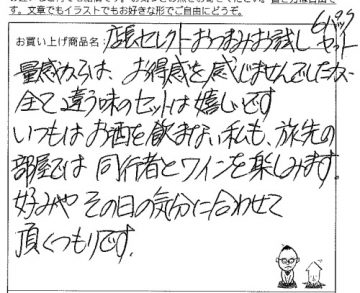 す。文章でもイラストでもお好きな形でご自由にどうぞ。
お買い上げ商品名: 店長セレクトおつまみお試し6パックセット
量感的には、お得感を感じませんでしたが
全て違う味のセットは嬉しいです
いつもはお酒を飲まない私も、旅先の
部屋では同行者とワインを楽しみます。
好みやその日の気分に合わせて
頂くつもりです。